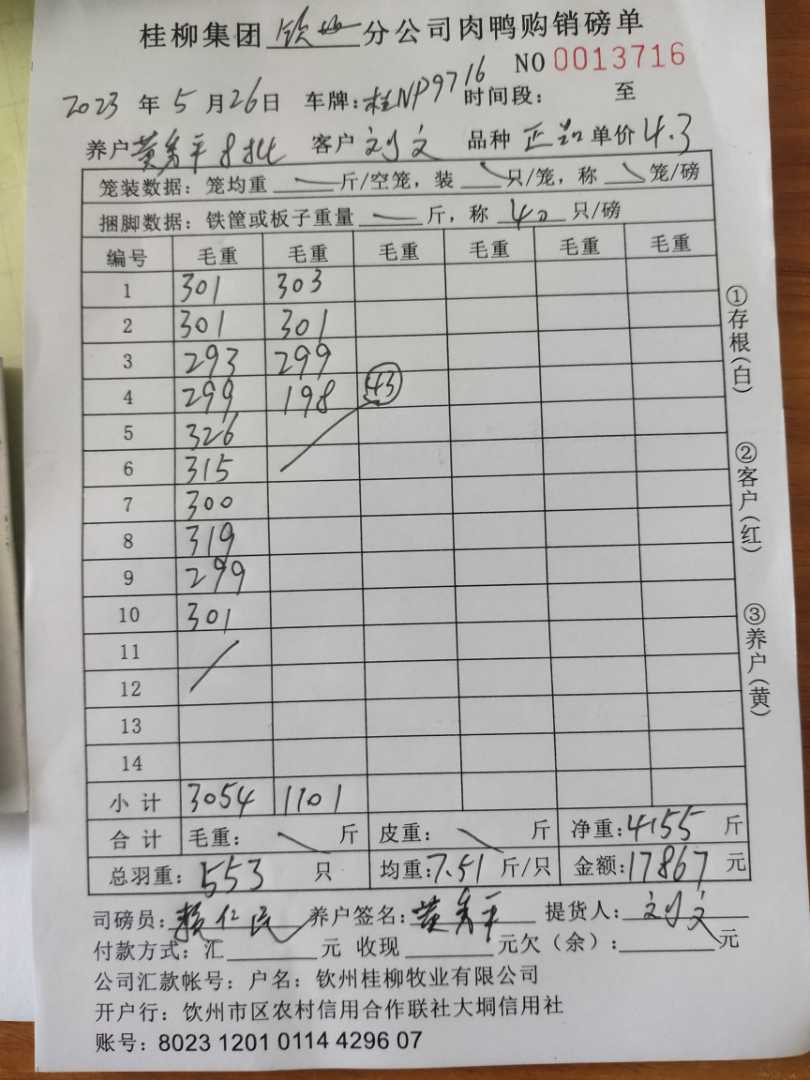 桂柳集团 钦州 分公司肉鸭购销磅单
NO 0013716
2023 年 5 月 26 日 车牌：桂NP9716 时间段： 至
养户 黄秀平8批 客户 刘文 品种 正韶 单价 4.3
笼装数据：笼均重 斤/空笼，装 只/笼，称 笼/磅
捆脚数据：铁筐或板子重量 斤，称 40 只/磅
编号 毛重 毛重 毛重 毛重 毛重 毛重
1 301 303
2 301 301
3 293 299
4 299 198 43
5 326
6 315
7 300
8 319
9 299
10 301
11
12
13
14
小计 3054 1101
合计 毛重： 斤 皮重： 斤 净重：4155 斤
总羽重：553 只 均重：7.51 斤/只 金额：17867 元
司磅员：赖仁民 养户签名：黄秀平 提货人：刘文
付款方式：汇 元 收现 元欠（余）： 元
公司汇款帐号：户名：钦州桂柳牧业有限公司
开户行：饮州市区农村信用合作联社大垌信用社
账号：8023 1201 0114 4296 07
①存根（白）
②客户（红）
③养户（黄）